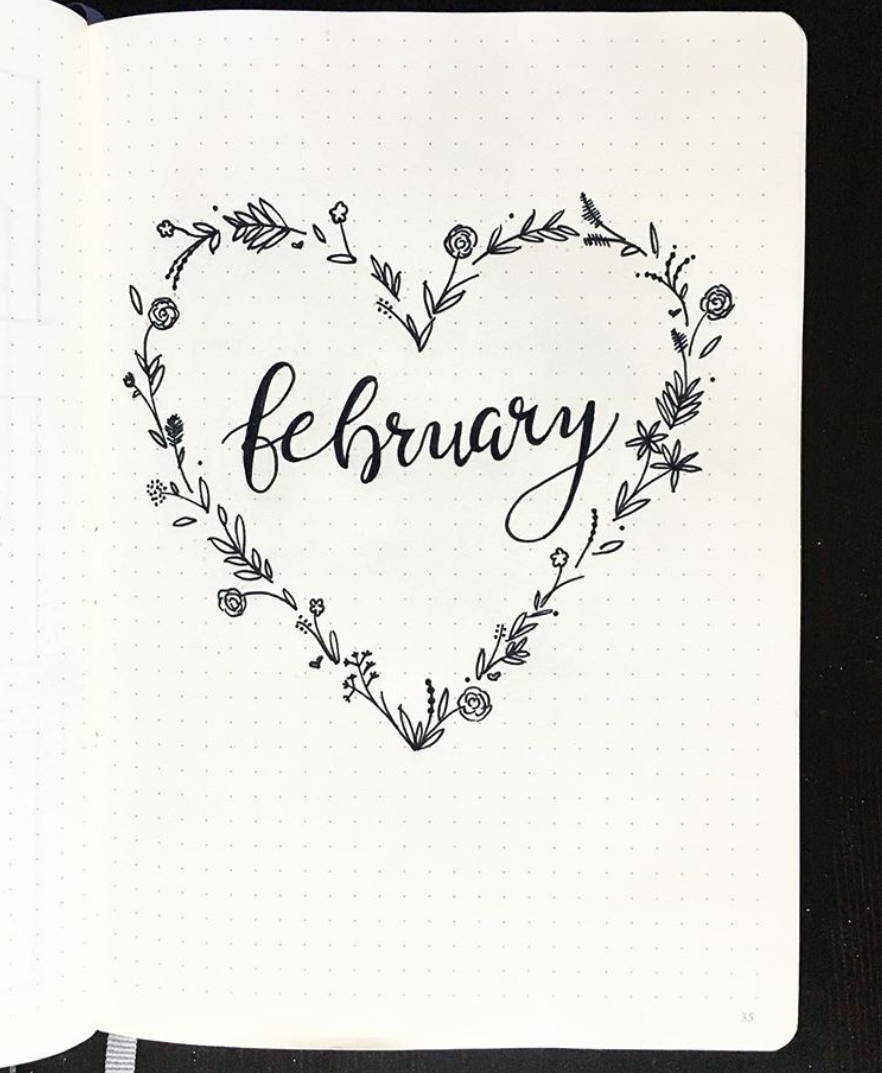 february
35